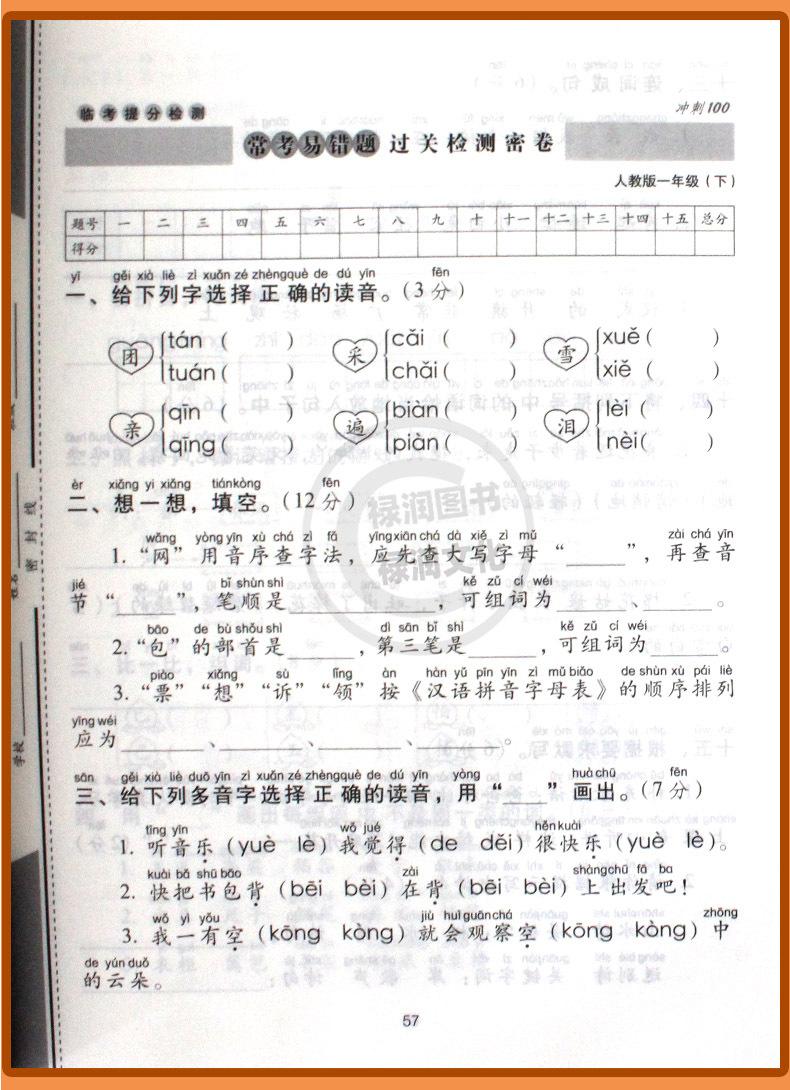 临考提分检测
冲刺100
常考易错题 过关检测密卷
人教版一年级（下）
题号 一 二 三 四 五 六 七 八 九 十 十一 十二 十三 十四 十五 总分
得分
yī gěi xià liè zì xuǎn zé zhèngquè de dú yīn fēn
一、给下列字选择正确的读音。（3分）
团 tán（ ） 采 cǎi（ ） 雪 xuě（ ）
tuán（ ） chǎi（ ） xiě（ ）
亲 qīn（ ） 遍 biàn（ ） 泪 lèi（ ）
qīng（ ） piàn（ ） nèi（ ）
èr xiǎng yi xiǎng tiánkòng fēn
二、想一想，填空。（12分）
wǎng yòng yīn xù chá zì fǎ yīngxiān chá dà xiě zì mǔ zài chá yīn
1. “网”用音序查字法，应先查大写字母“____”，再查音
jié bǐ shùn shì kě zǔ cí wéi
节“____”，笔顺是______，可组词为______、______。
bāo de bù shǒu shì dì sān bǐ shì kě zǔ cí wéi
2. “包”的部首是______，第三笔是______，可组词为______。
piào xiǎng sù lǐng àn hàn yǔ pīn yīn zì mǔ biǎo de shùn xù pái liè
3. “票”“想”“诉”“领”按《汉语拼音字母表》的顺序排列
yīng wéi
应为______、______、______、______。
sān gěi xià liè duō yīn zì xuǎn zé zhèngquè de dú yīn yòng huà chū fēn
三、给下列多音字选择正确的读音，用“___”画出。（7分）
tīng yīn wǒ jué hěn kuài
1. 听音乐（yuè lè）我觉得（de děi）很快乐（yuè lè）。
kuài bǎ shū bāo zài shàng chū fā ba
2. 快把书包背（bēi bèi）在背（bēi bèi）上出发吧！
wǒ yì yǒu jiù huì guān chá zhōng
3. 我一有空（kōng kòng）就会观察空（kōng kòng）中
de yún duǒ
的云朵。
57
线
封
密
学校
禄润图书
禄润文化